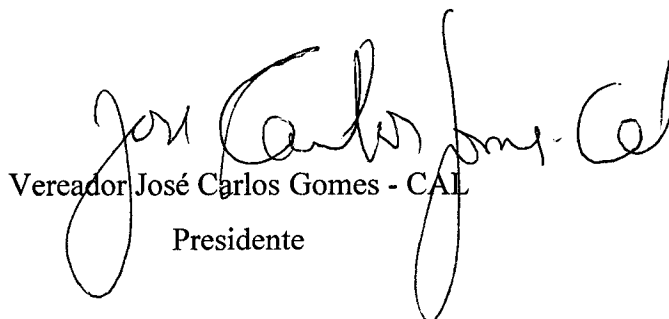 José Carlos Gomes - Cal
Vereador José Carlos Gomes - CAL
Presidente